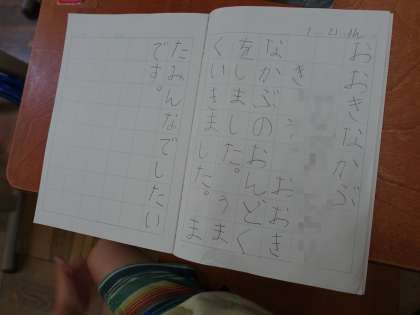 おおきなかぶ
き
おおき
なかぶのおんどく
をしました。うま
くいきました。ま
たみんなでしたい
です。